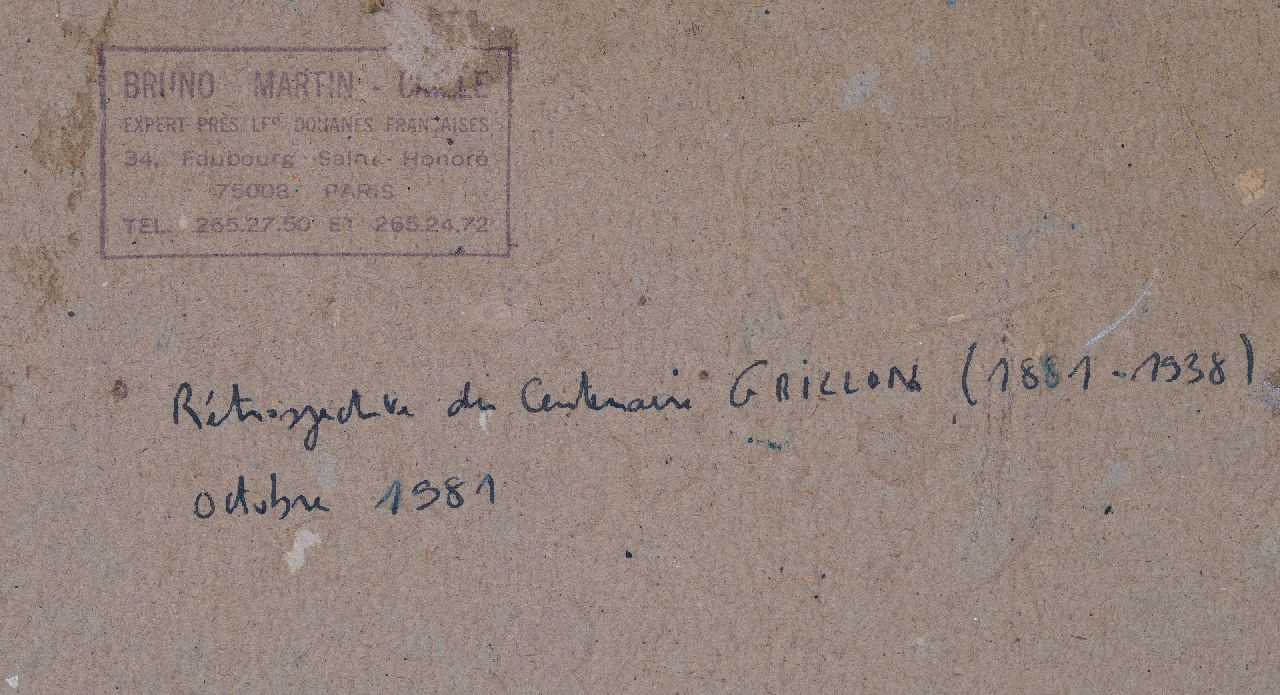 BRUNO - MARTIN - CAILLE
EXPERT PRÈS LES DOUANES FRANÇAISES
34, Faubourg Saint-Honoré
75008 PARIS
TEL. 265.27.50 ET 265.24.72
Rétrospective du Centenaire GRILLON (1881-1938)
octobre 1981